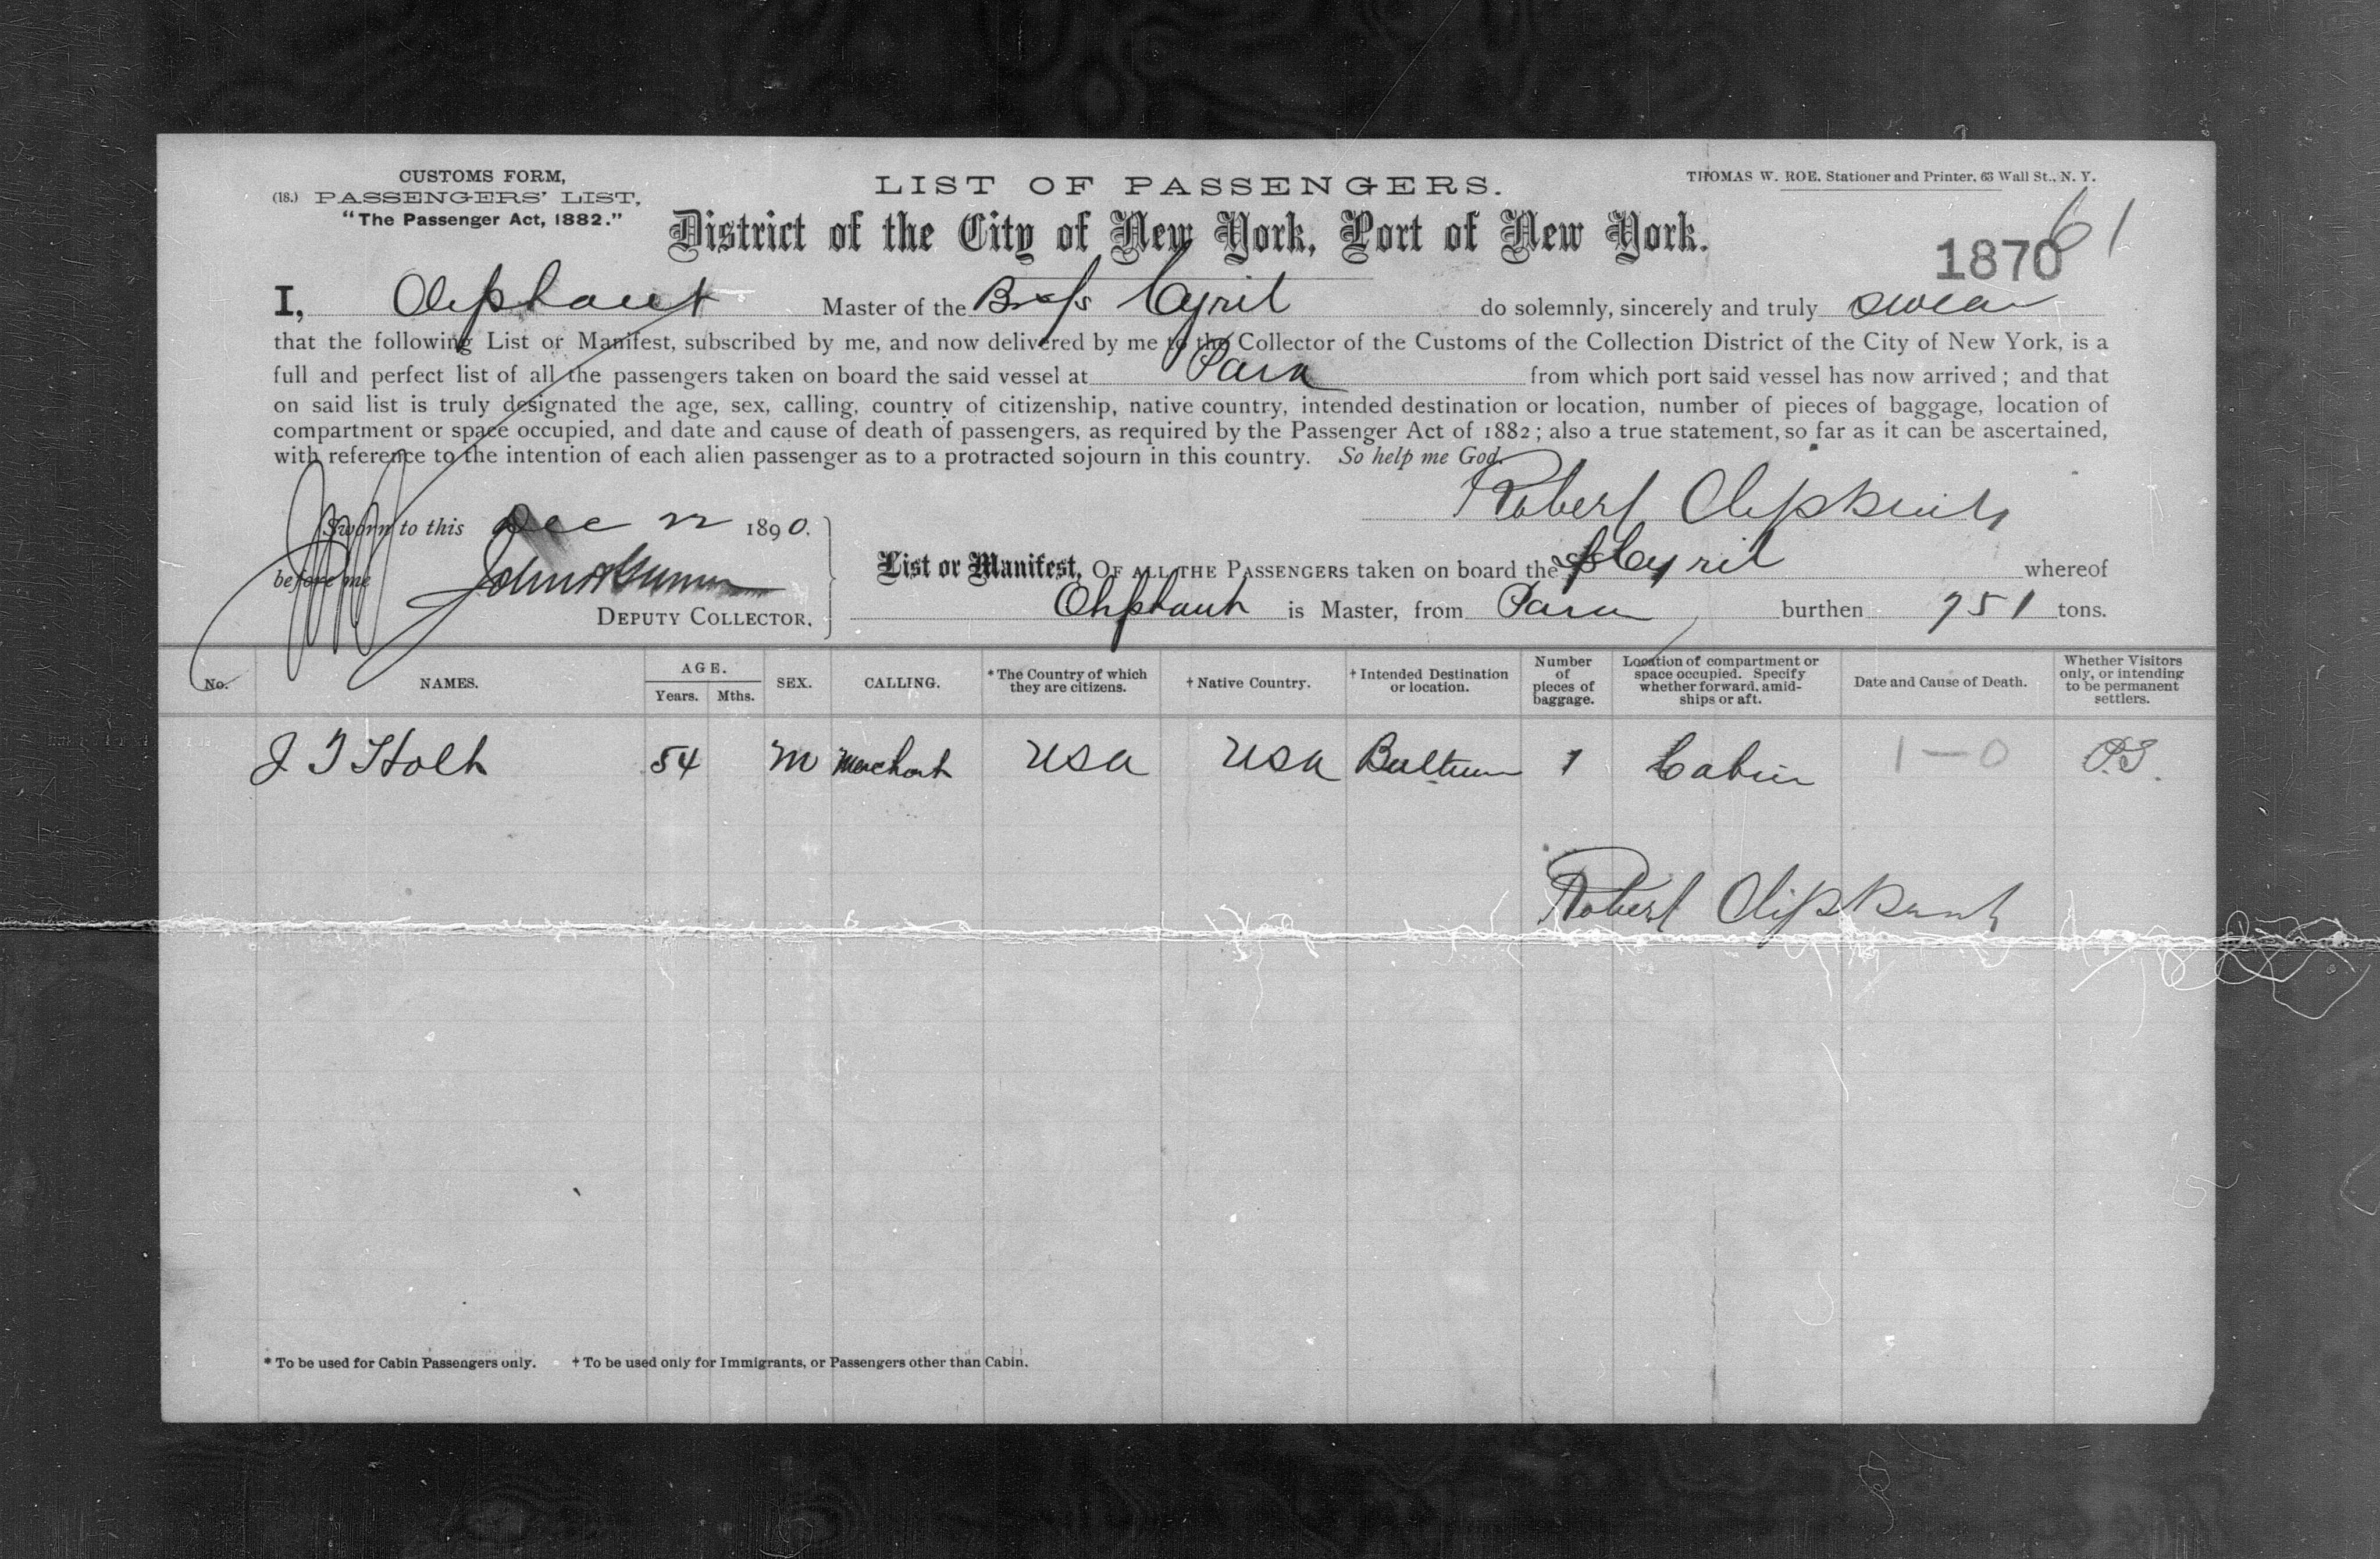 CUSTOMS FORM,
(18.) PASSENGERS' LIST,
"The Passenger Act, 1882."
LIST OF PASSENGERS.
THOMAS W. ROE. Stationer and Printer, 63 Wall St., N. Y.
District of the City of New York, Port of New York.
1870
61
I, Oliphant Master of the Br s/s Cyril do solemnly, sincerely and truly swear
that the following List or Manifest, subscribed by me, and now delivered by me to the Collector of the Customs of the Collection District of the City of New York, is a
full and perfect list of all the passengers taken on board the said vessel at Para from which port said vessel has now arrived; and that
on said list is truly designated the age, sex, calling, country of citizenship, native country, intended destination or location, number of pieces of baggage, location of
compartment or space occupied, and date and cause of death of passengers, as required by the Passenger Act of 1882; also a true statement, so far as it can be ascertained,
with reference to the intention of each alien passenger as to a protracted sojourn in this country. So help me God.
Robert Oliphant
Sworn to this Dec 22 1890.
before me
DEPUTY COLLECTOR.
List or Manifest, OF ALL THE PASSENGERS taken on board the SS Cyril whereof
Oliphant is Master, from Para burthen 751 tons.
No.
NAMES.
AGE.
Years. Mths.
SEX.
CALLING.
* The Country of which
they are citizens.
† Native Country.
† Intended Destination
or location.
Number
of
pieces of
baggage.
Location of compartment or
space occupied. Specify
whether forward, amid-
ships or aft.
Date and Cause of Death.
Whether Visitors
only, or intending
to be permanent
settlers.
J T Holt 54 M Merchant USA USA 1 Cabin 1-0 P.S.
Robert Oliphant
* To be used for Cabin Passengers only. † To be used only for Immigrants, or Passengers other than Cabin.